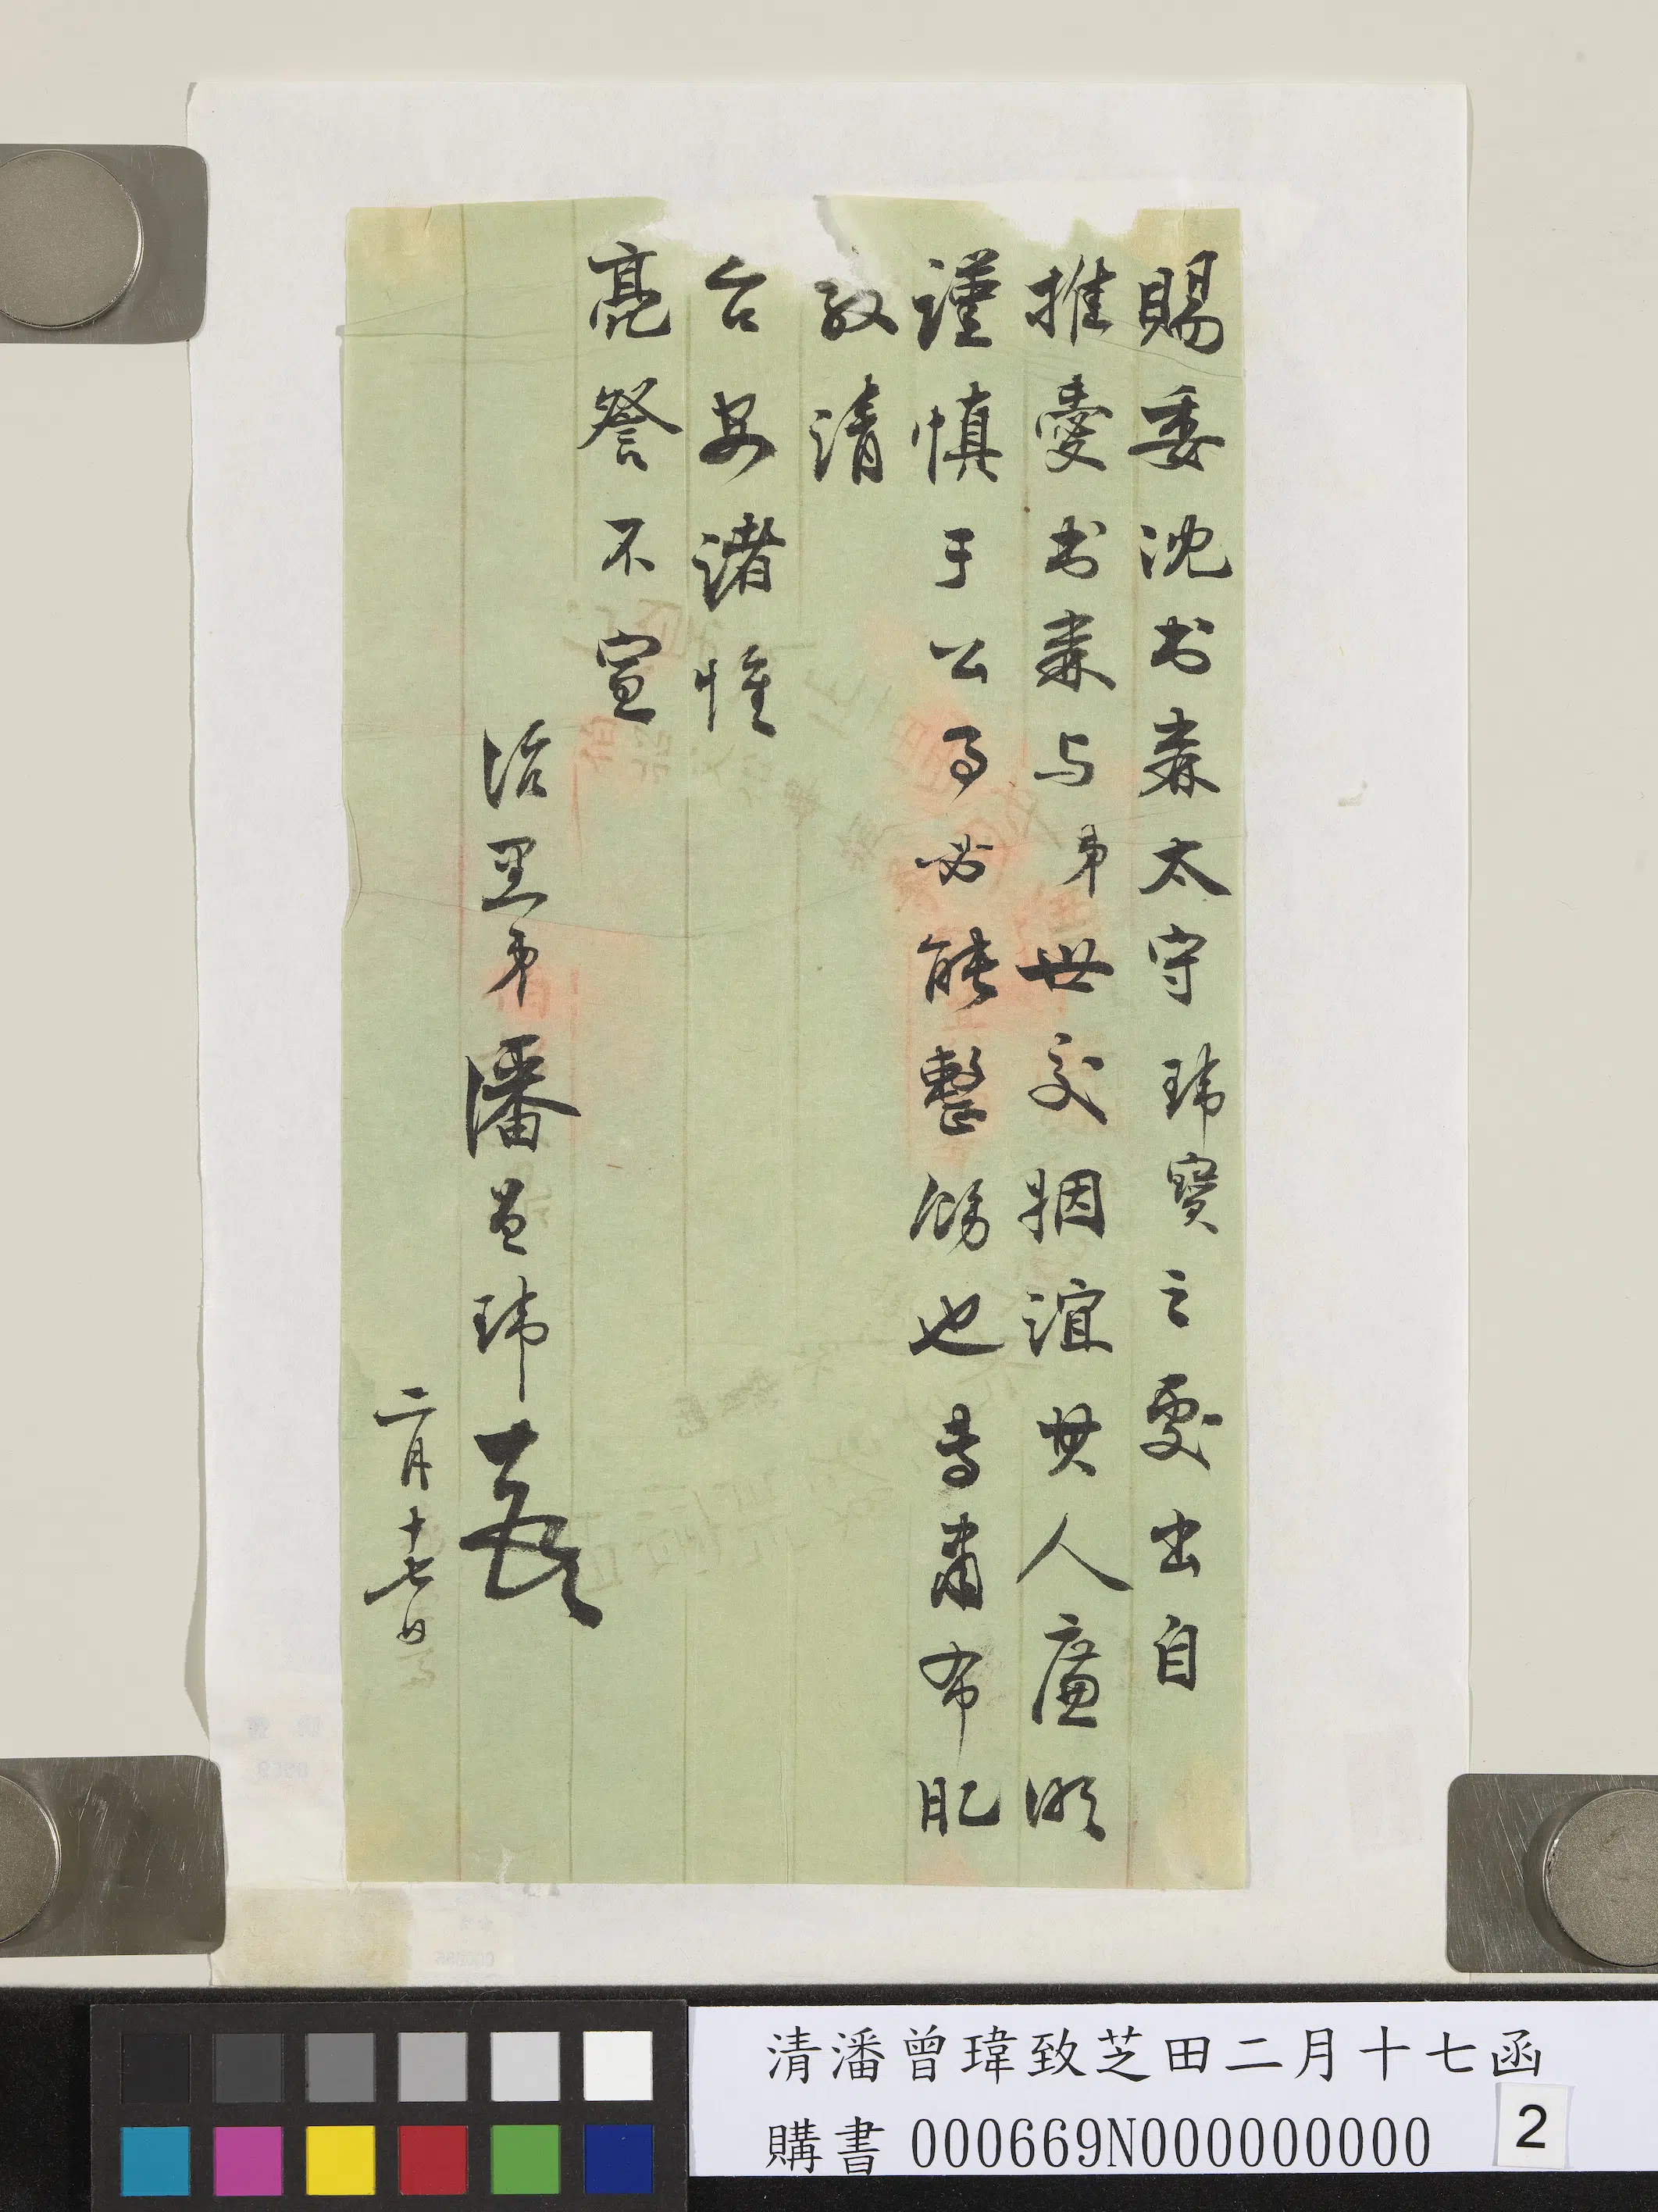 賜委沈書森太守瑋寶之處出自
推愛书森与弟世交姻誼其人廉明
謹慎于公事必能整飭也專肅布肊
敬請
台安諸惟
亮詧不宣
治里弟潘曾瑋
二月十七日
清潘曾瑋致芝田二月十七函
購書 000669N000000000
2